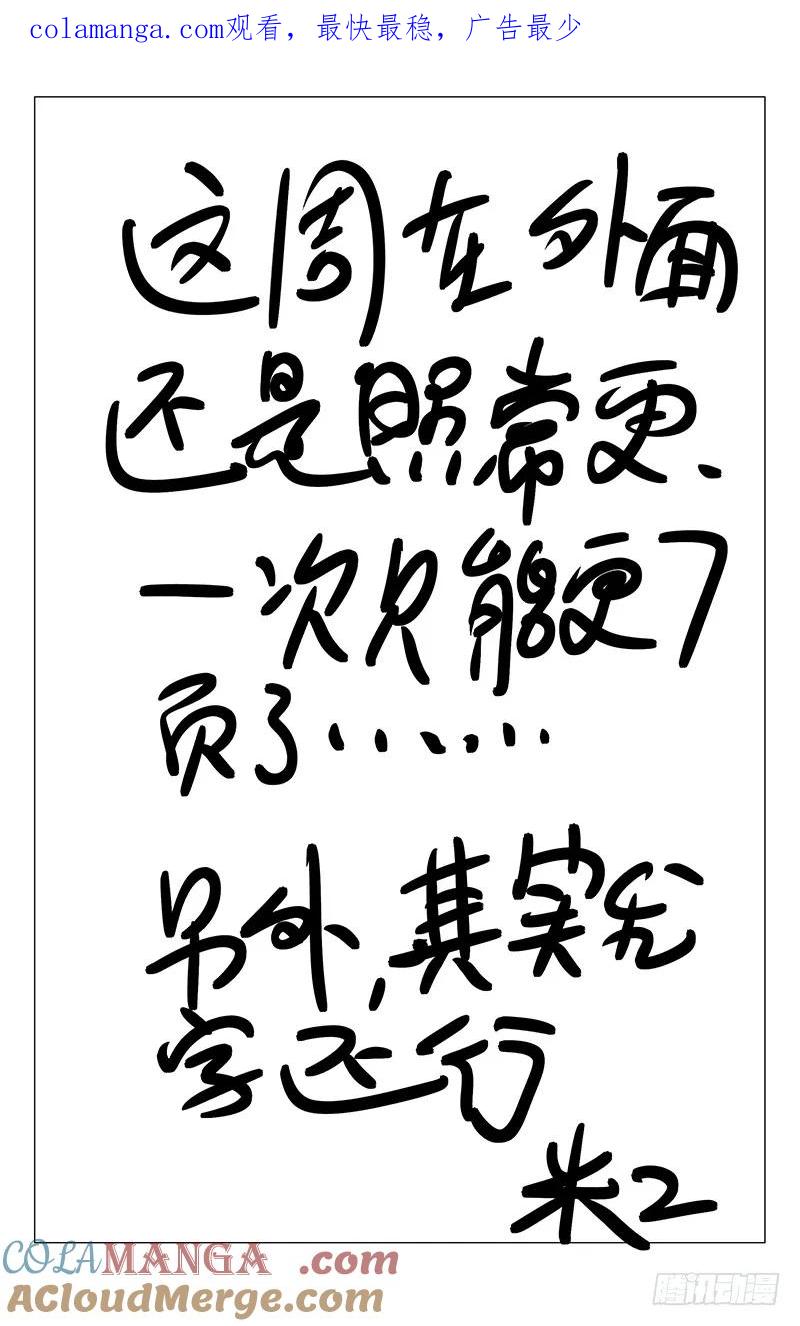 colamanga.com观看，最快最稳，广告最少
这周在外面
还是照常更、
一次只能更7
页了……
另外，其实无
字还行
米二
COLAMANGA.com
AcloudMerge.com
腾讯动漫